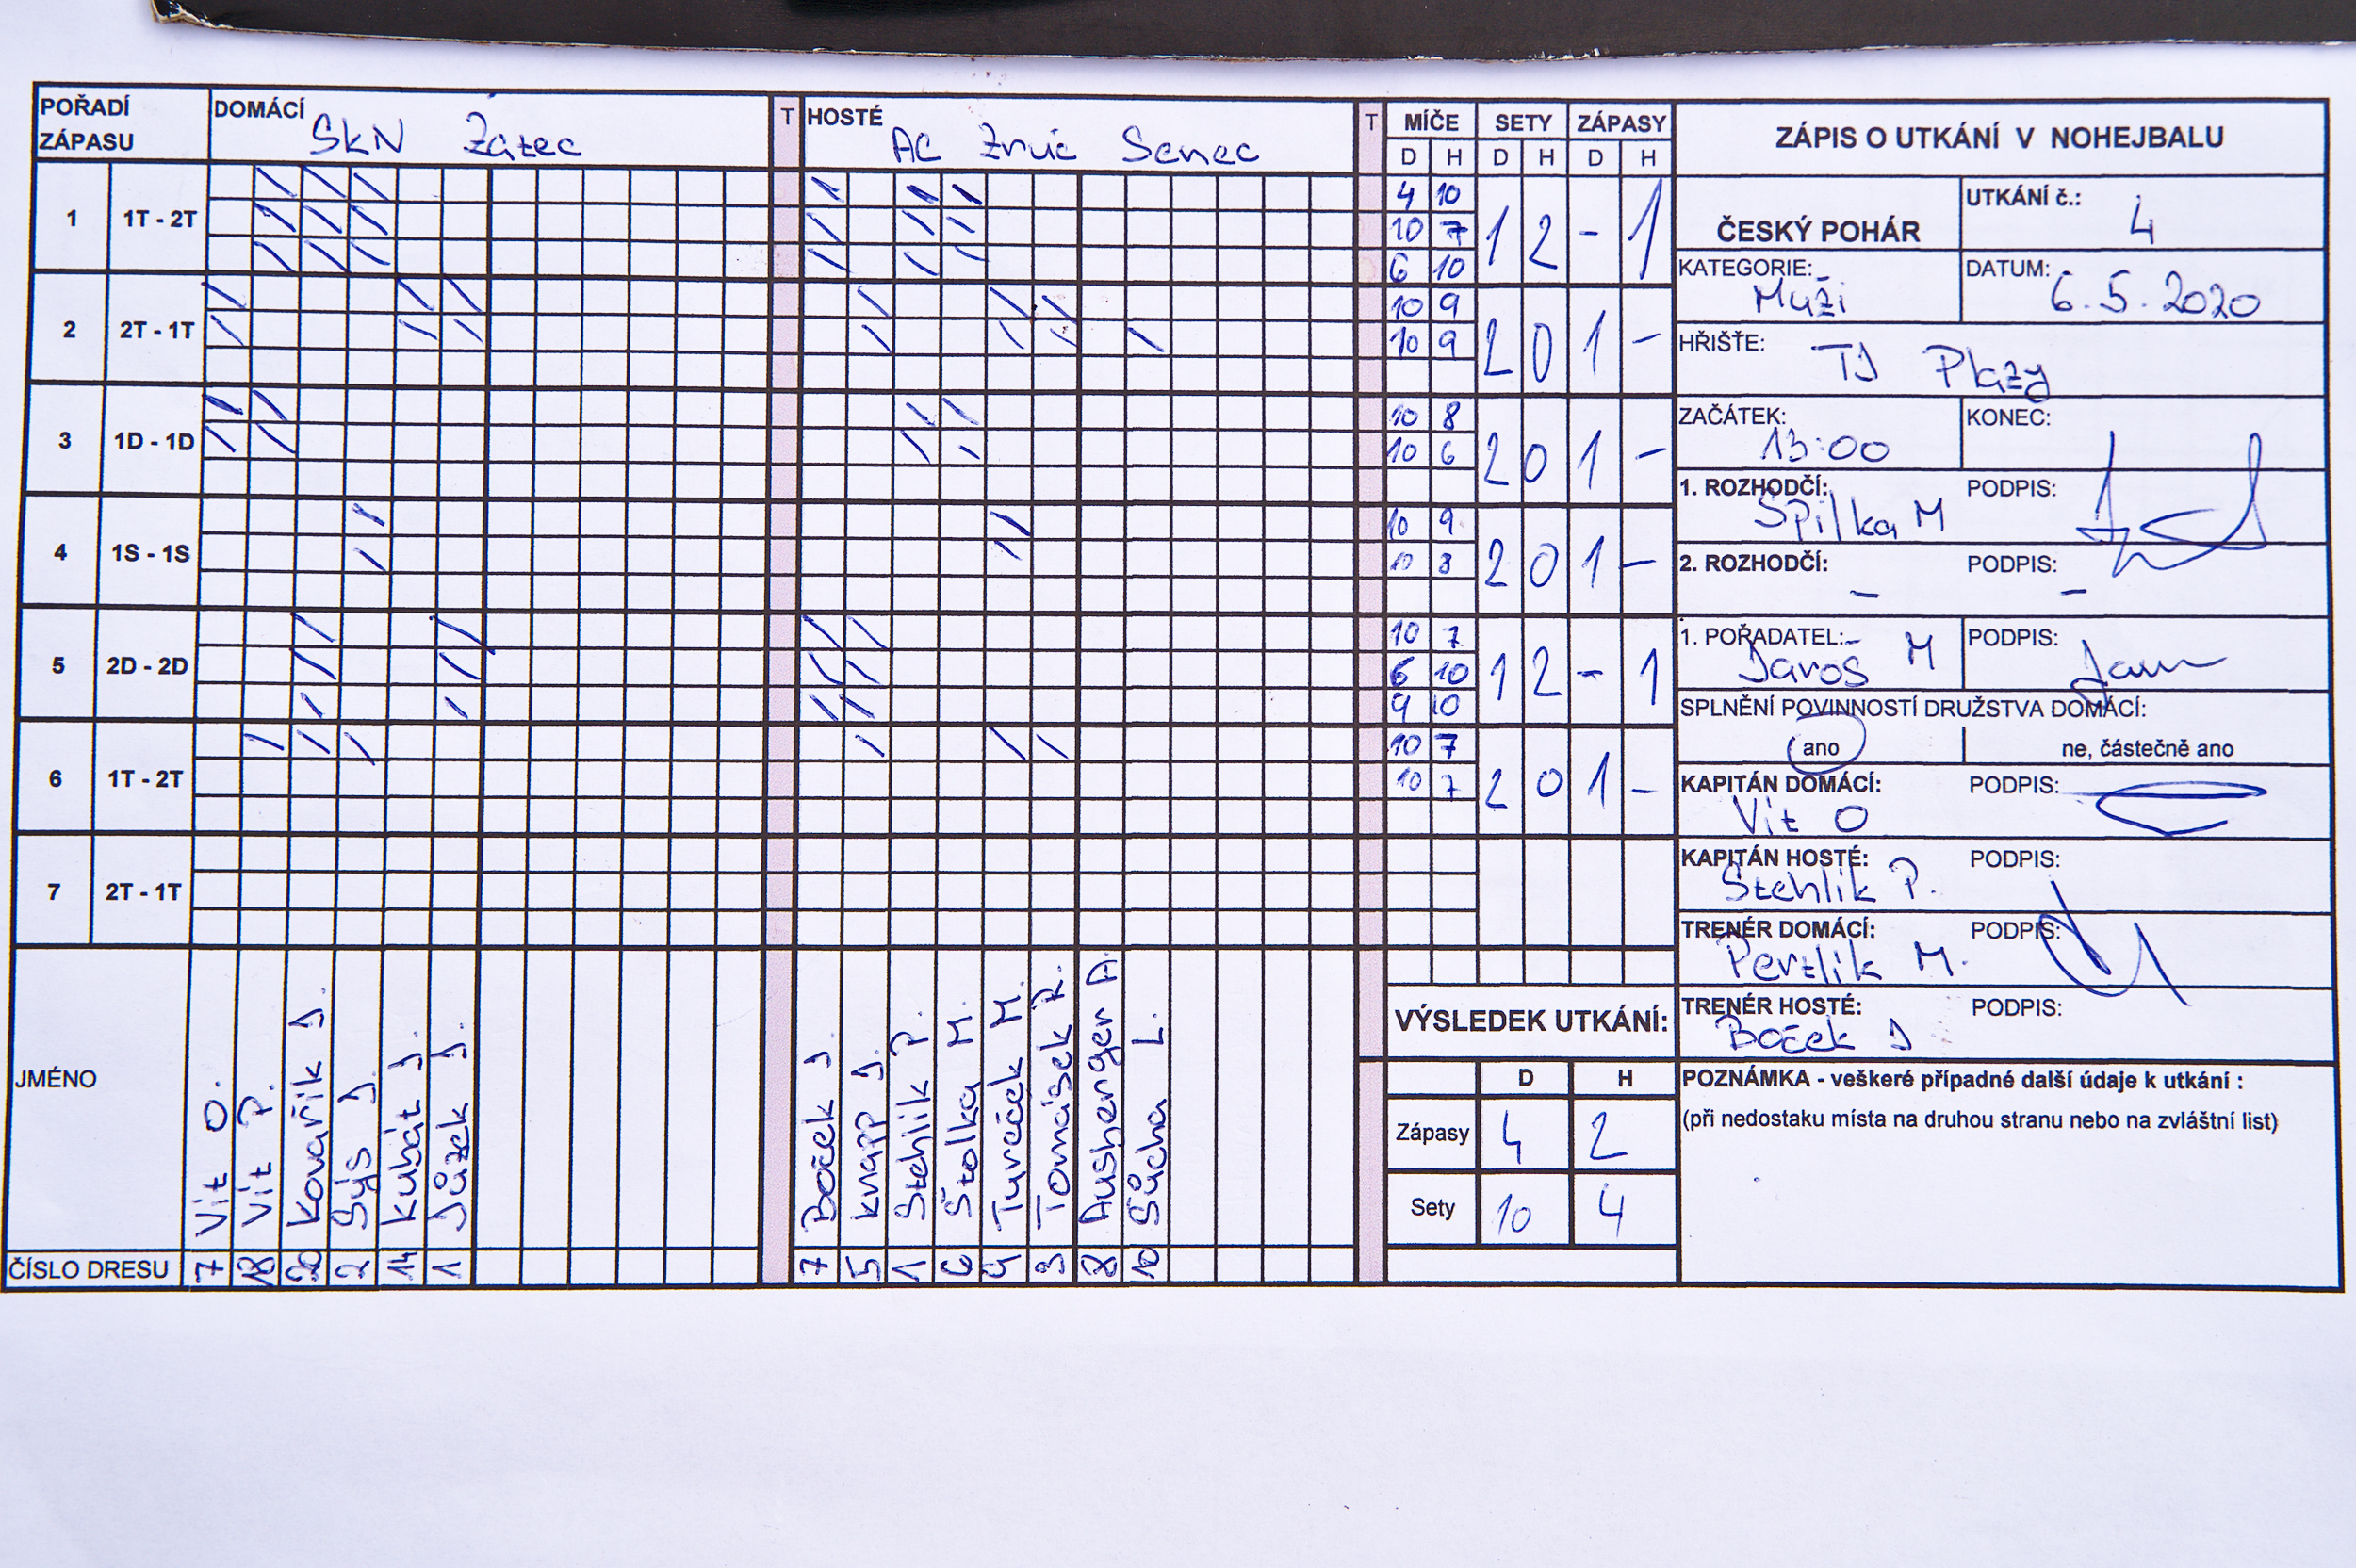 POŘADÍ ZÁPASU DOMÁCÍ SKN Žatec T HOSTÉ AC Zruč Senec T MÍČE SETY ZÁPASY
D H D H D H
1 1T - 2T 4 10 1 2 - 1
10 7
6 10
2 2T - 1T 10 9 2 0 1 -
10 9
3 1D - 1D 10 8 2 0 1 -
10 6
4 1S - 1S 10 9 2 0 1 -
10 8
5 2D - 2D 10 7 1 2 - 1
6 10
9 10
6 1T - 2T 10 7 2 0 1 -
10 7
7 2T - 1T
JMÉNO
Vít O.
Vít P.
Kovařík J.
Sýs J.
Kubát J.
Jůzek J.
Boček J.
Knapp J.
Stehlík P.
Štolka M.
Tureček M.
Tomášek R.
Ausberger A.
Sůcha L.
ČÍSLO DRESU 7 18 20 2 14 1 7 5 1 6 9 3 8 10
ZÁPIS O UTKÁNÍ V NOHEJBALU
ČESKÝ POHÁR UTKÁNÍ č.: 4
KATEGORIE: Muži DATUM: 6.5.2020
HŘIŠTE: TJ Plazy
ZAČÁTEK: 13:00 KONEC:
1. ROZHODČÍ: Spilka M PODPIS:
2. ROZHODČÍ: - PODPIS: -
1. POŘADATEL: Jaroš M PODPIS:
SPLNĚNÍ POVINNOSTÍ DRUŽSTVA DOMÁCÍ:
ano ne, částečně ano
KAPITÁN DOMÁCÍ: Vít O PODPIS:
KAPITÁN HOSTÉ: Stehlík P. PODPIS:
TRENÉR DOMÁCÍ: Pertlík M. PODPIS:
TRENÉR HOSTÉ: Boček J PODPIS:
VÝSLEDEK UTKÁNÍ:
D H
Zápasy 4 2
Sety 10 4
POZNÁMKA - veškeré případné další údaje k utkání :
(při nedostaku místa na druhou stranu nebo na zvláštní list)